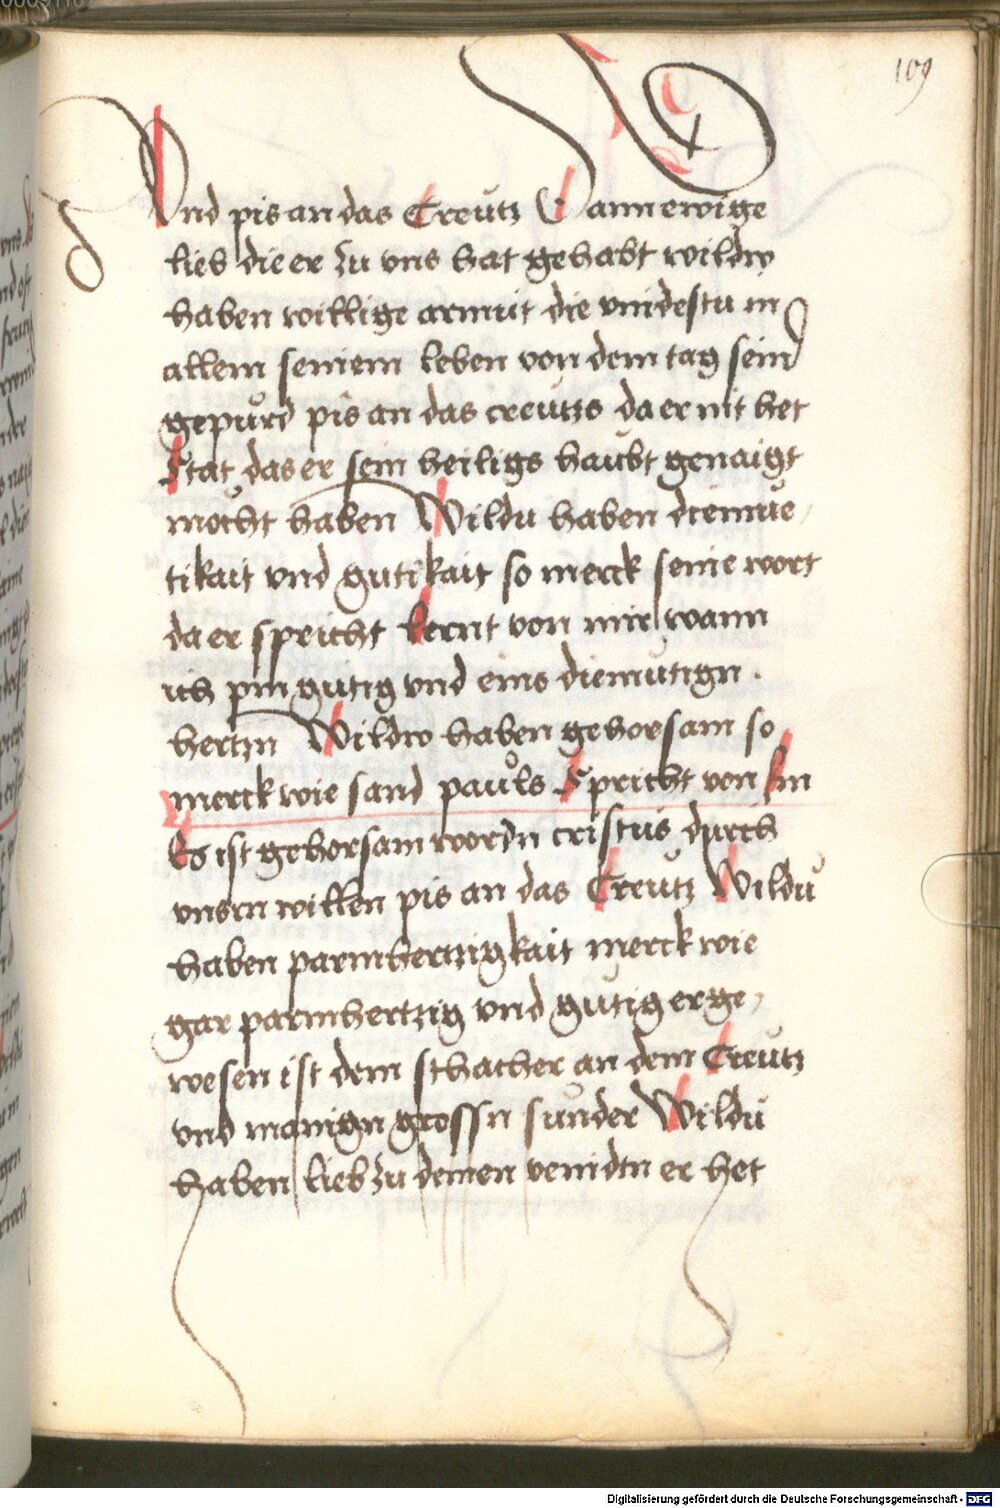 109
Vnd pis an das Creutz Wann ewige
lieb die er zu vns hat gehabt wildw
haben willige armut die vindestu in
allem seinem leben von dem tag seind
gepurd pis an das creutzs da er nit het
Stat das er sein heiligs haubt genaigt
mocht haben Wildu haben diemue,
tikait vnd gutikait so merck seine wort
da er spricht lernt von mir wann
ich pin gutig vnd eins diemutign .
hertzn Wildw haben gehorsam so
merck wie sand pauls Spricht von Im
Es ist gehorsam wordn cristus durch
vnsrn willen pis an das Creutz Wildu
haben parmhertzigkait merck wie
gar parmhertzig vnd gutig er ge,
wesen ist dem schacher an dem Creutz
vnd manign grossn sunder Wildu
haben lieb zu deinen veindtn er het
Digitalisierung gefördert durch die Deutsche Forschungsgemeinschaft - DFG